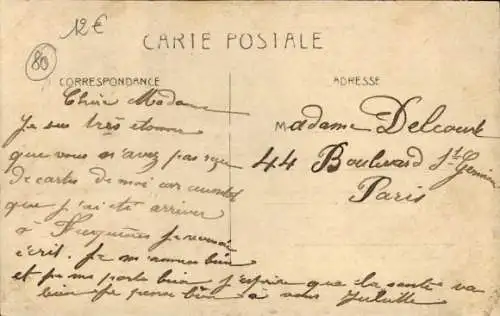 12€
80
CARTE POSTALE
CORRESPONDANCE
ADRESSE
Chère Madame
Je sui très étonné
que vous n'avez pas reçu
de cartes de moi car aussitot
que j'ai été arriver
à Juquières je vous ai
écrit. Je m'ennuie bien
et je me porte bien J'espère que la santé va
bien Je pense bien à vous Juliette
Madame Delcourt
44 Boulevard St Germain
Paris